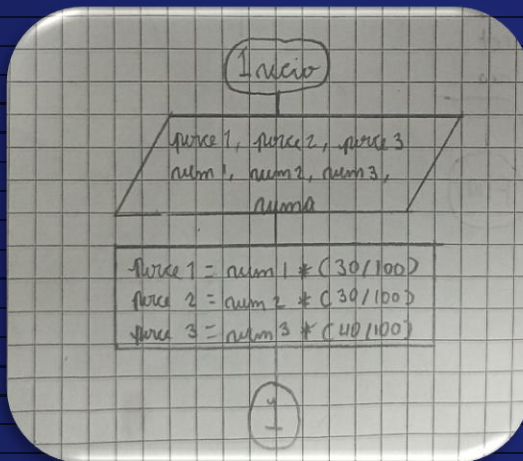 Inicio
porce 1, porce 2, porce 3
num 1, num 2, num 3,
suma
Porce 1 = num 1 * (30/100)
Porce 2 = num 2 * (30/100)
Porce 3 = num 3 * (40/100)
1